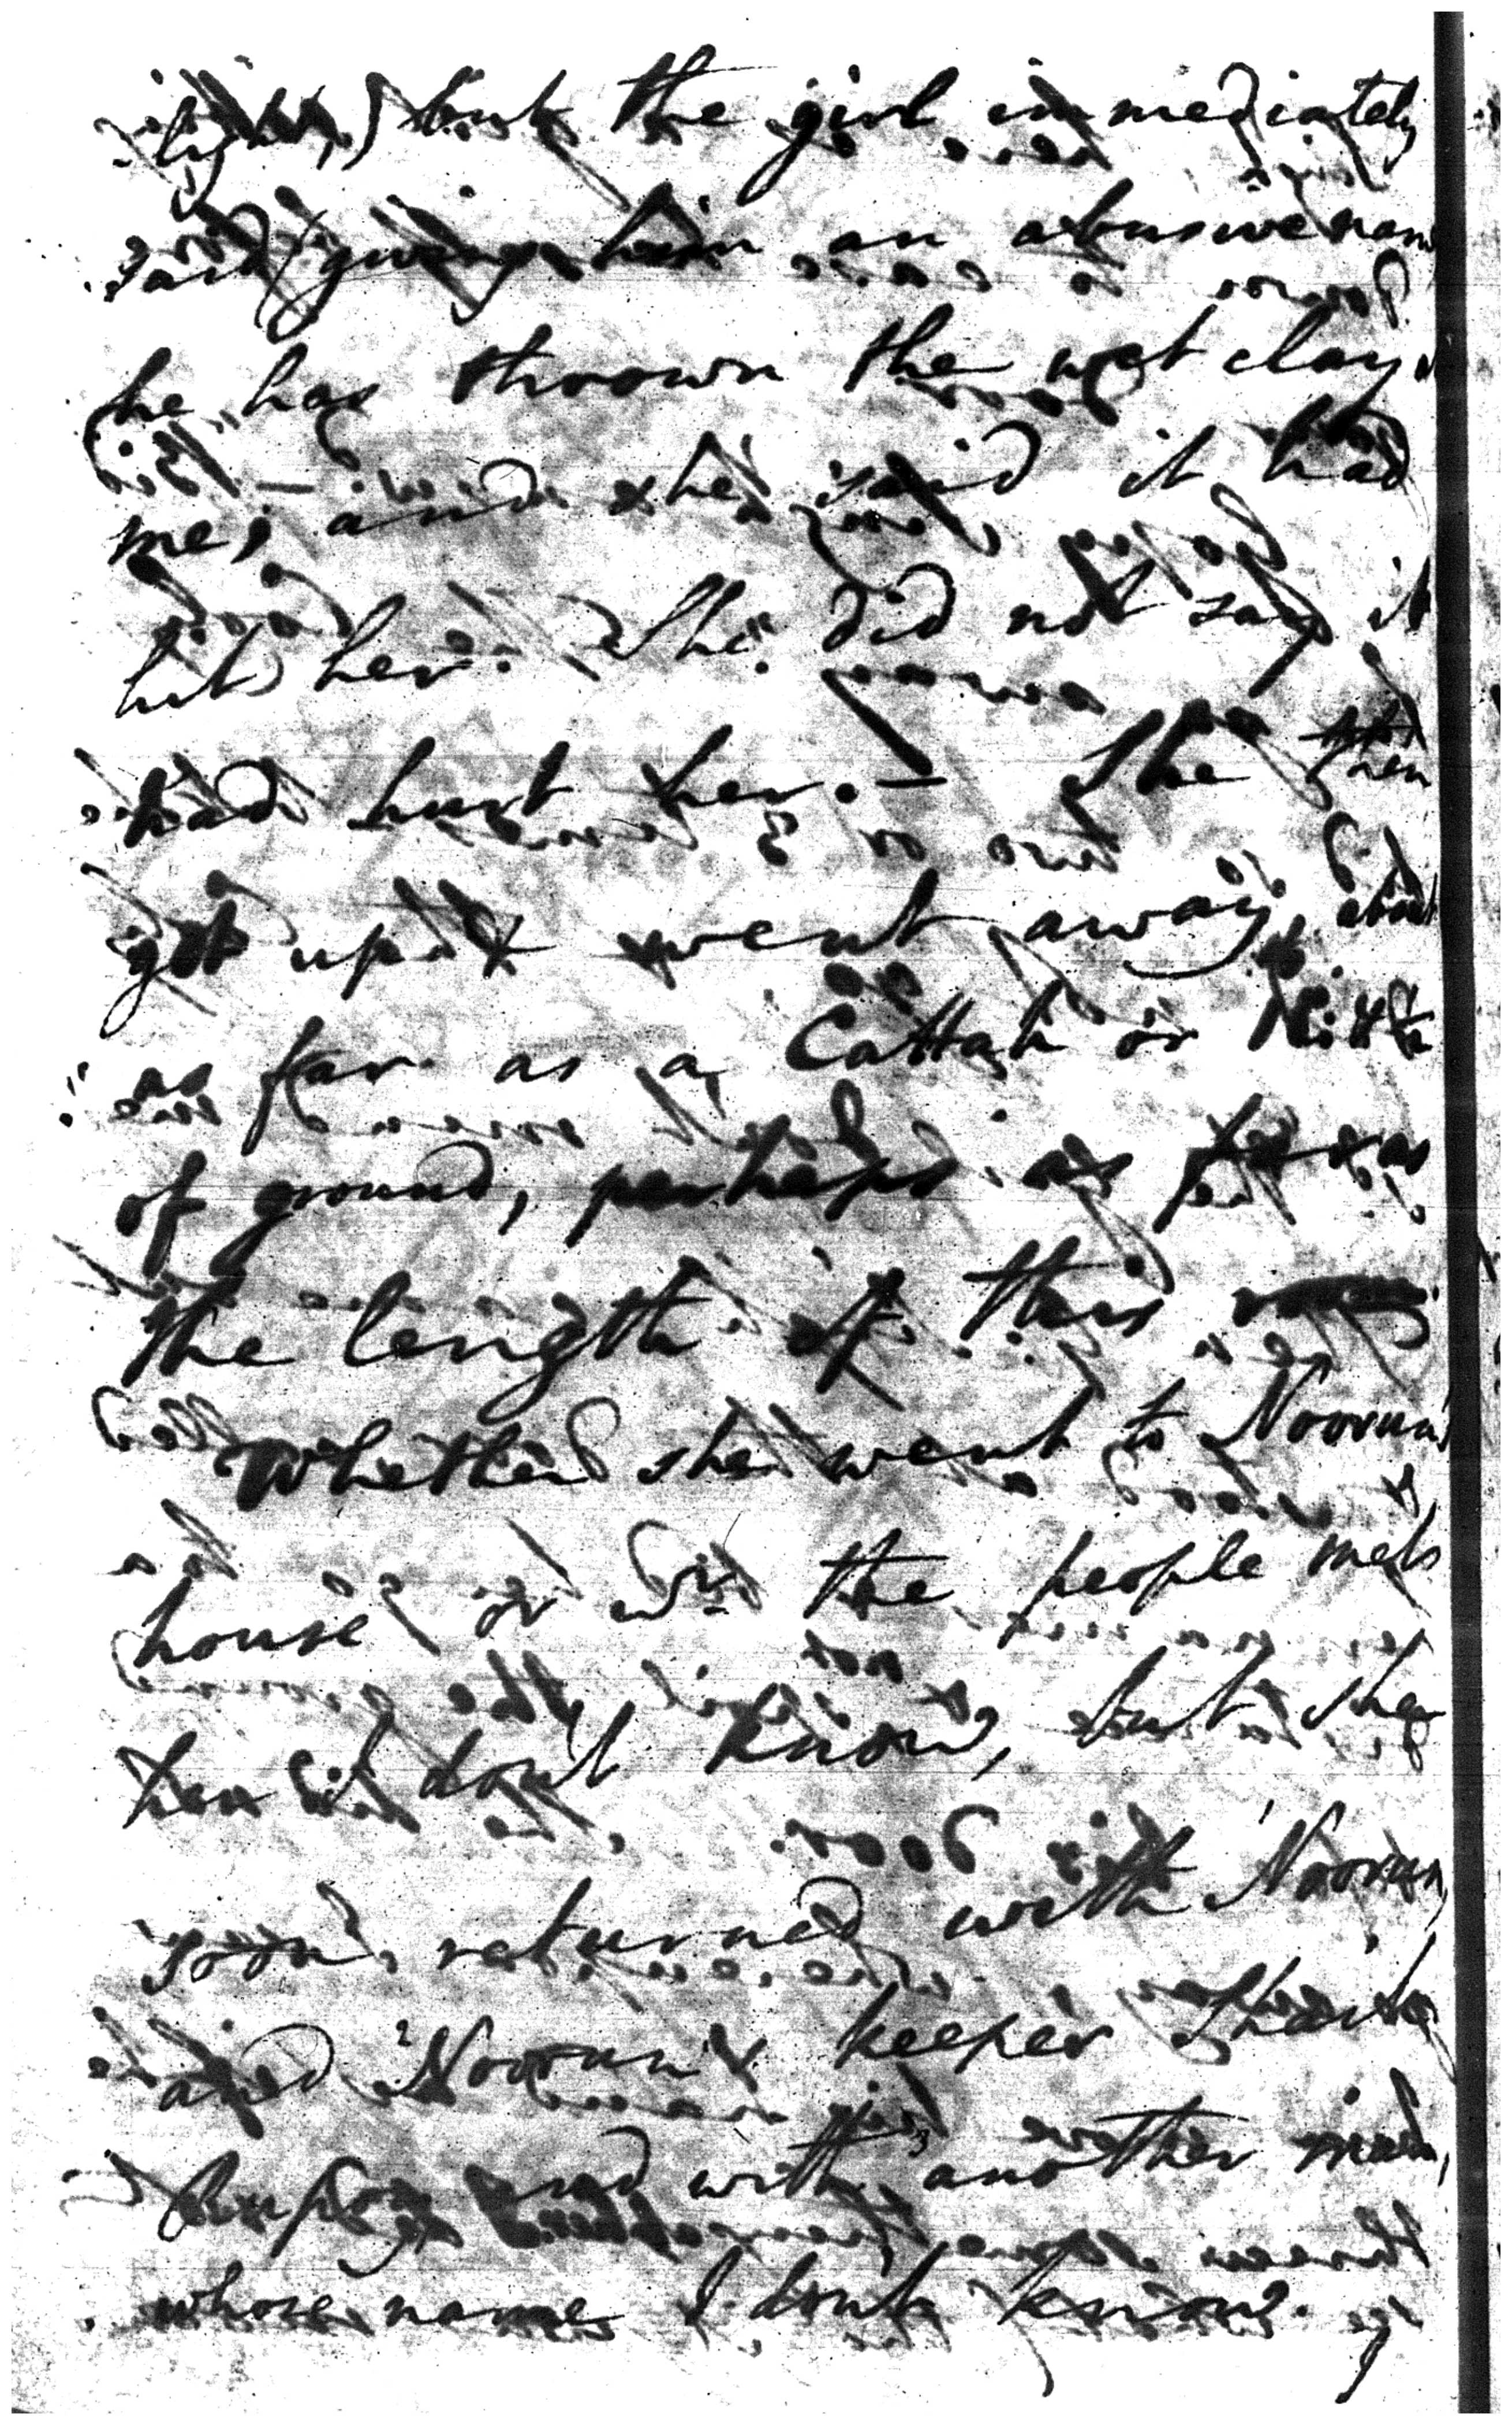 light,) but the girl immediately
said (giving him an abusive name
he has thrown the wet clay
me, and she said it had
hit her. She did not say it
had hurt her. — She then
got up & went away, about
as far as a Cattah or
of ground, perhaps as far as
the length of this
Whether she went to Noorun
house or the people met
her I don't know, but she
soon returned with Noorun
and Noorun's keeper Shaik
and with another man,
whose name I don't know.